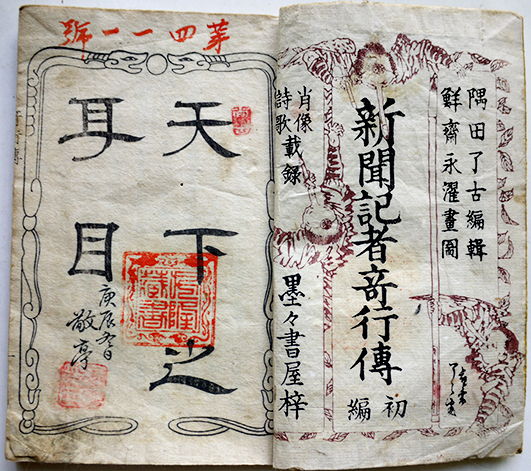 隅田了古編輯
鮮齋永濯畫圖
新聞記者竒行傳
初編
肖像
詩歌載録
墨々書屋梓
苐四一一號
天下之
耳目
庚辰
敬亭